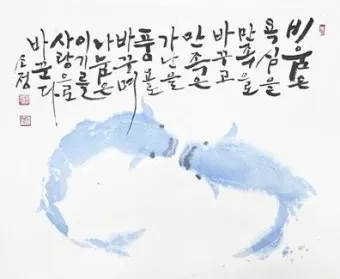 비움은
욕심을
만족으로
바꾸고
만족은
가난을
풍요로
바꾸며
나눔은
이기를
사랑으로
바꾼다